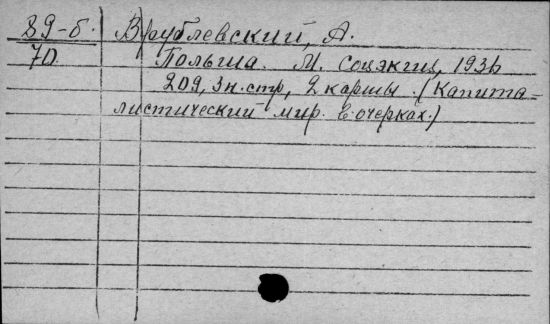 89-б. Врублевский, А.
70. Польша. М. Соцэкгиз, 1936
209, 3 н. стр, 2 карты. (Капита-
листический мир в очерках.)